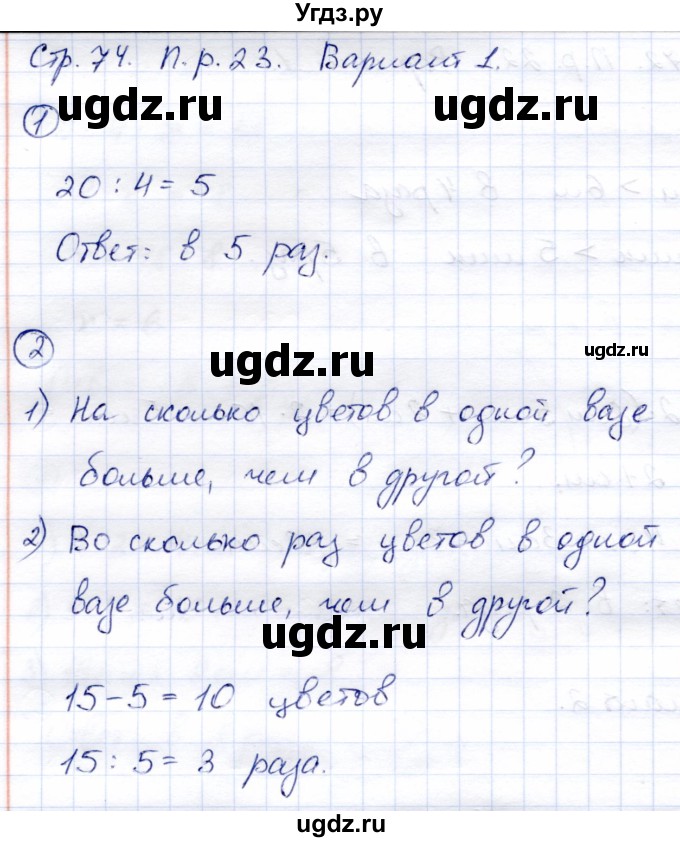 Угдз.ру
Стр. 74. П. р. 23. Вариант 1.
ugdz.ru ugdz.ru
1
20 : 4 = 5
Ответ: в 5 раз.
2
ugdz.ru ugdz.ru
1) На сколько цветов в одной вазе
больше, чем в другой?
2) Во сколько раз цветов в одной
вазе больше, чем в другой?
ugdz.ru
15 - 5 = 10 цветов
15 : 5 = 3 раза.
ugdz.ru